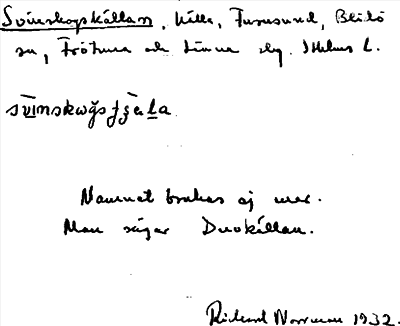 Svinskogskällan, källa, Furusund, Blidö
sn, Frötuna och Länna slg. Sthlms l.
svinskogstjela
Namnet brukas ej mer.
Man säger Duvkällan.
Rickard Norrman 1932.